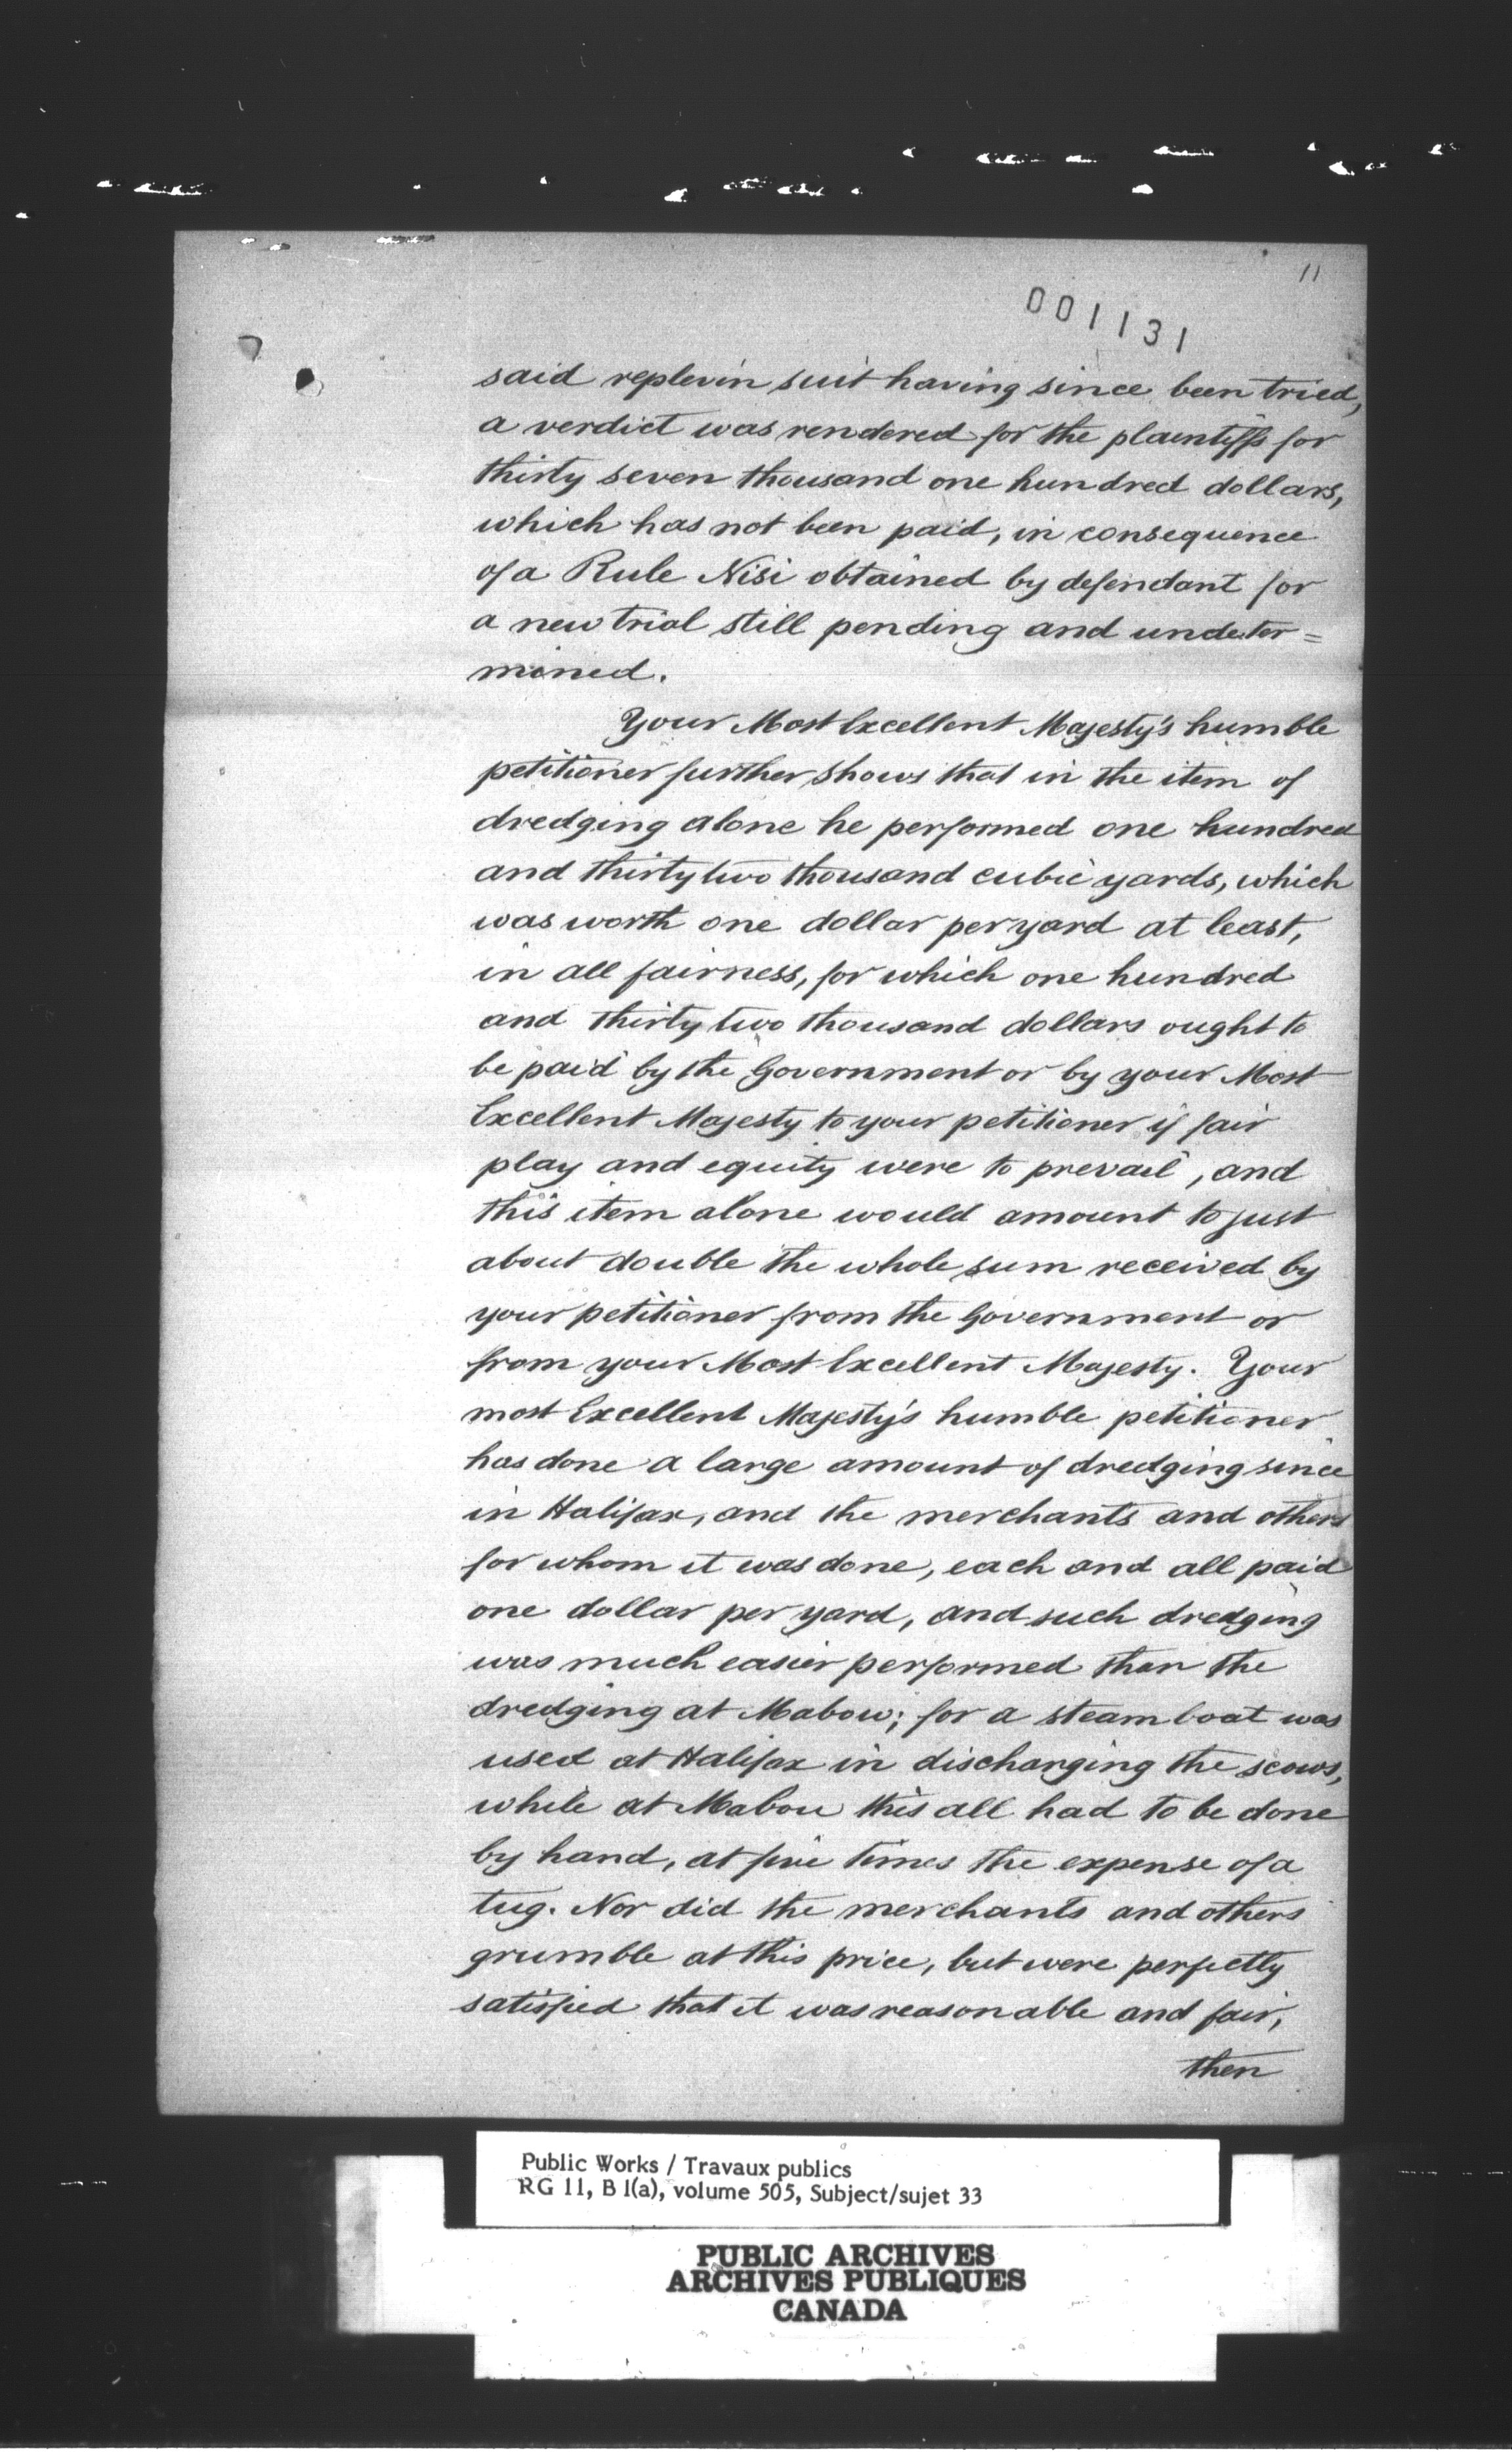 11
001131
said replevin suit having since been tried,
a verdict was rendered for the plaintiffs for
thirty seven thousand one hundred dollars,
which has not been paid, in consequence
of a Rule Nisi obtained by defendant for
a new trial still pending and undeter=
mined.
Your Most Excellent Majesty's humble
petitioner further shows that in the item of
dredging alone he performed one hundred
and thirty two thousand cubic yards, which
was worth one dollar per yard at least,
in all fairness, for which one hundred
and thirty two thousand dollars ought to
be paid by the Government or by your Most
Excellent Majesty to your petitioner if fair
play and equity were to prevail, and
this item alone would amount to just
about double the whole sum received by
your petitioner from the Government or
from your Most Excellent Majesty. Your
most Excellent Majesty's humble petitioner
has done a large amount of dredging since
in Halifax, and the merchants and others
for whom it was done, each and all paid
one dollar per yard, and such dredging
was much easier performed than the
dredging at Mabow; for a steam boat was
used at Halifax in discharging the scows,
while at Mabou this all had to be done
by hand, at five times the expense of a
tug. Nor did the merchants and others
grumble at this price, but were perfectly
satisfied that it was reasonable and fair,
then
Public Works / Travaux publics
RG 11, B 1(a), volume 505, Subject/sujet 33
PUBLIC ARCHIVES
ARCHIVES PUBLIQUES
CANADA